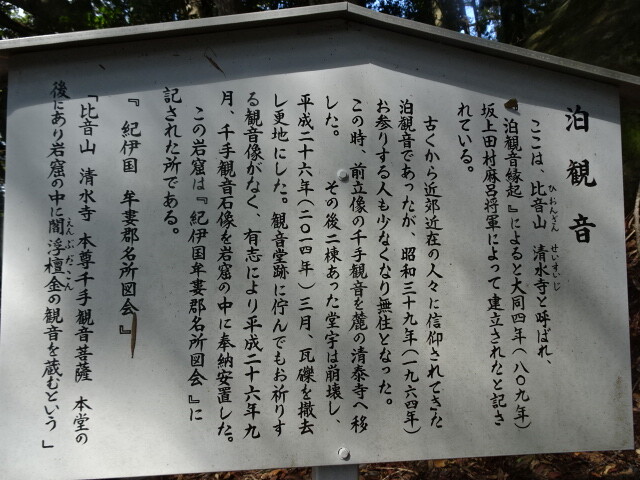 泊観音
ここは、比音山　清水寺と呼ばれ、
ひおんざん　せいすいじ
『泊観音縁起』によると大同四年（八〇九年）
坂上田村麻呂将軍によって建立されたと記さ
れている。
古くから近郊近在の人々に信仰されてきた
泊観音であったが、昭和三十九年（一九六四年）
お参りする人も少なくなり無住となった。
この時、前立像の千手観音を麓の清泰寺へ移
した。　その後二棟あった堂宇は崩壊し、
平成二十六年（二〇一四年）三月、瓦礫を撤去
し更地にした。観音堂跡に佇んでもお祈りす
る観音像がなく、有志により平成二十六年九
月、千手観音石像を岩窟の中に奉納安置した。
この岩窟は『紀伊国牟婁郡名所図会』に
記された所である。
『　紀伊国　牟婁郡名所図会』
「比音山　清水寺　本尊千手観音菩薩　本堂の
後にあり岩窟の中に閻浮檀金の観音を蔵むという」
えんぶだごん